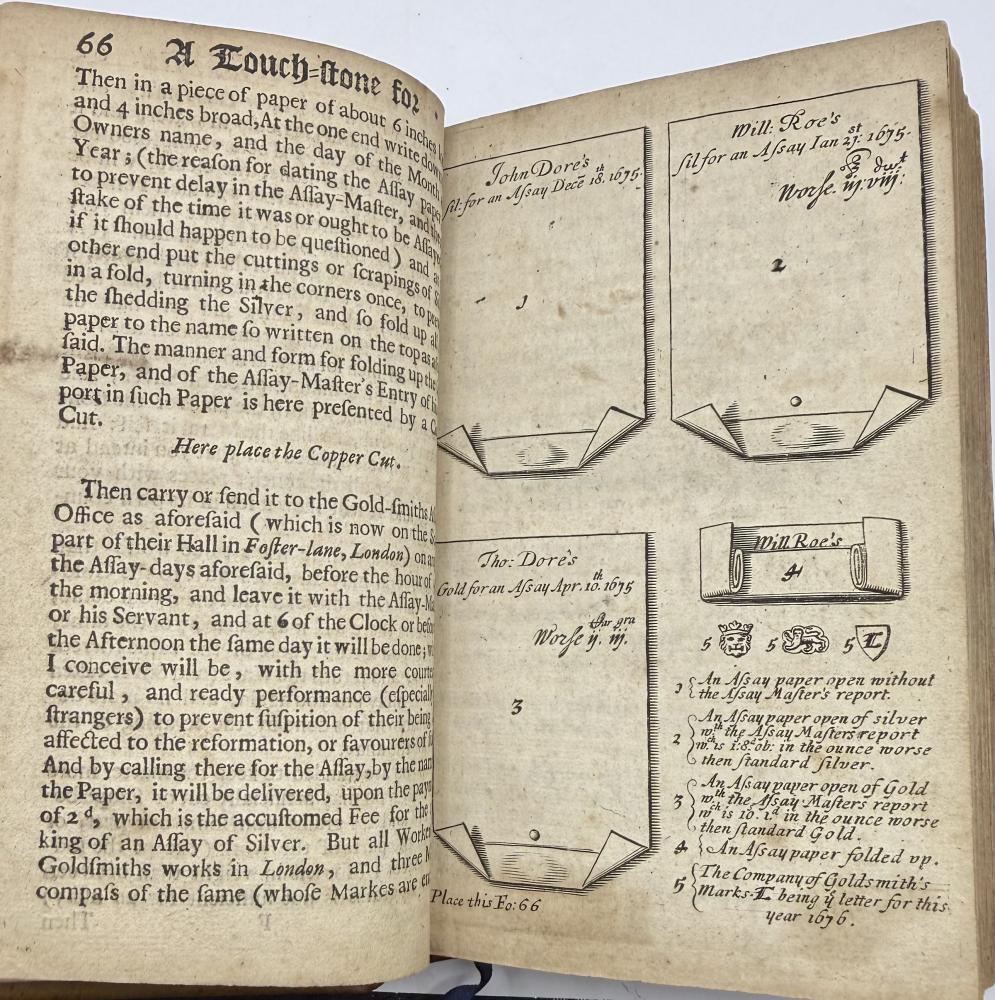 66 A Touch-ſtone for
Then in a piece of paper of about 6 inches
and 4 inches broad, At the one end write down
Owners name, and the day of the Month
Year; (the reaſon for dating the Aſſay paper
to prevent delay in the Aſſay-Maſter, and
ſtake of the time it was or ought to be Aſſaye
if it ſhould happen to be queſtioned) and a
other end put the cuttings or ſcrapings of
in a fold, turning in the corners once, to
the ſhedding the Silver, and ſo fold up
paper to the name ſo written on the top as
ſaid. The manner and form for folding up the
Paper, and of the Aſſay-Maſter's Entry of
port in ſuch Paper is here preſented by a
Cut.
Here place the Copper Cut.
Then carry or ſend it to the Gold-ſmiths
Office as aforeſaid (which is now on the
part of their Hall in Foſter-lane, London) on
the Aſſay-days aforeſaid, before the hour of
the morning, and leave it with the Aſſay-
or his Servant, and at 6 of the Clock or
the Afternoon the ſame day it will be done;
I conceive will be, with the more
careful, and ready performance (eſpecial
ſtrangers) to prevent ſuſpition of their being
affected to the reformation, or favourers of
And by calling there for the Aſſay, by the
the Paper, it will be delivered, upon the
of 2 d, which is the accuſtomed Fee for the
king of an Aſſay of Silver. But all
Goldſmiths works in London, and three
compaſs of the ſame (whoſe Markes are
F
Then
John Dore's
ſil: for an Aſsay Decē 18.th 1675.
1
Will: Roe's
ſil for an Aſsay Ian 21:st 1675.
dwt
Worſe. iij: viij:
2
Tho: Dore's
Gold for an Aſsay Apr. 10.th 1675
Car gra
Worſe ij. iij.
3
Will Roe's
4
5 5 5 L
1 An Aſsay paper open without
the Aſsay Maſter's report.
2 An Aſsay paper open of silver
wth. the Aſsay Maſters report
wch. is 1:8d. ob: in the ounce worse
then ſtandard ſilver.
3 An Aſsay paper open of Gold
wth. the Aſsay Maſters report
wch is 10. 1d in the ounce worse
then ſtandard Gold.
4 An Aſsay paper folded vp.
5 The Company of Goldsmith's
Marks. L being ye letter for this
year 1676.
Place this Fo: 66